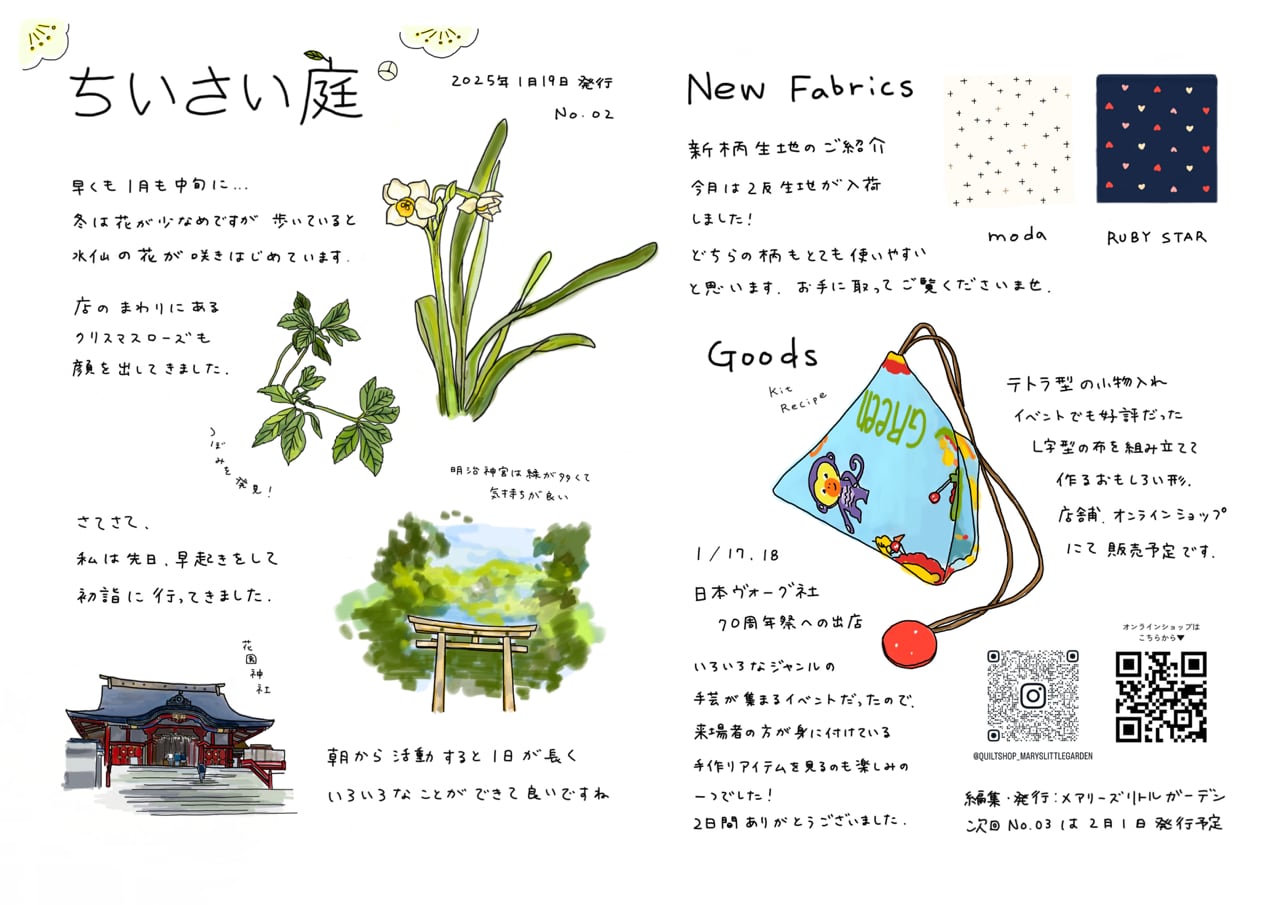 ちいさい庭
2025年1月19日発行
No.02
早くも1月も中旬に...
冬は花が少なめですが 歩いていると
水仙の花が咲きはじめています.
店のまわりにある
クリスマスローズも
顔を出してきました.
つぼみを発見!
さてさて、
私は先日、早起きをして
初詣に行ってきました.
明治神宮は緑が多くて
気持ちが良い
花園神社
朝から活動すると1日が長く
いろいろなことができて良いですね
New Fabrics
新柄生地のご紹介
今月は2反生地が入荷
しました!
どちらの柄もとても使いやすい
と思います. お手に取ってご覧くださいませ.
moda
RUBY STAR
Goods
Kit
Recipe
GREEN
テトラ型の小物入れ
イベントでも好評だった
L字型の布を組み立てて
作るおもしろい形.
店舗、オンラインショップ
にて販売予定です.
1/17.18
日本ヴォーグ社
70周年祭への出店
いろいろなジャンルの
手芸が集まるイベントだったので、
来場者の方が身に付けている
手作りアイテムを見るのも楽しみの
一つでした!
2日間ありがとうございました.
オンラインショップは
こちらから▼
@QUILTSHOP_MARYSLITTLEGARDEN
編集・発行:メアリーズリトルガーデン
次回No.03は2月1日発行予定